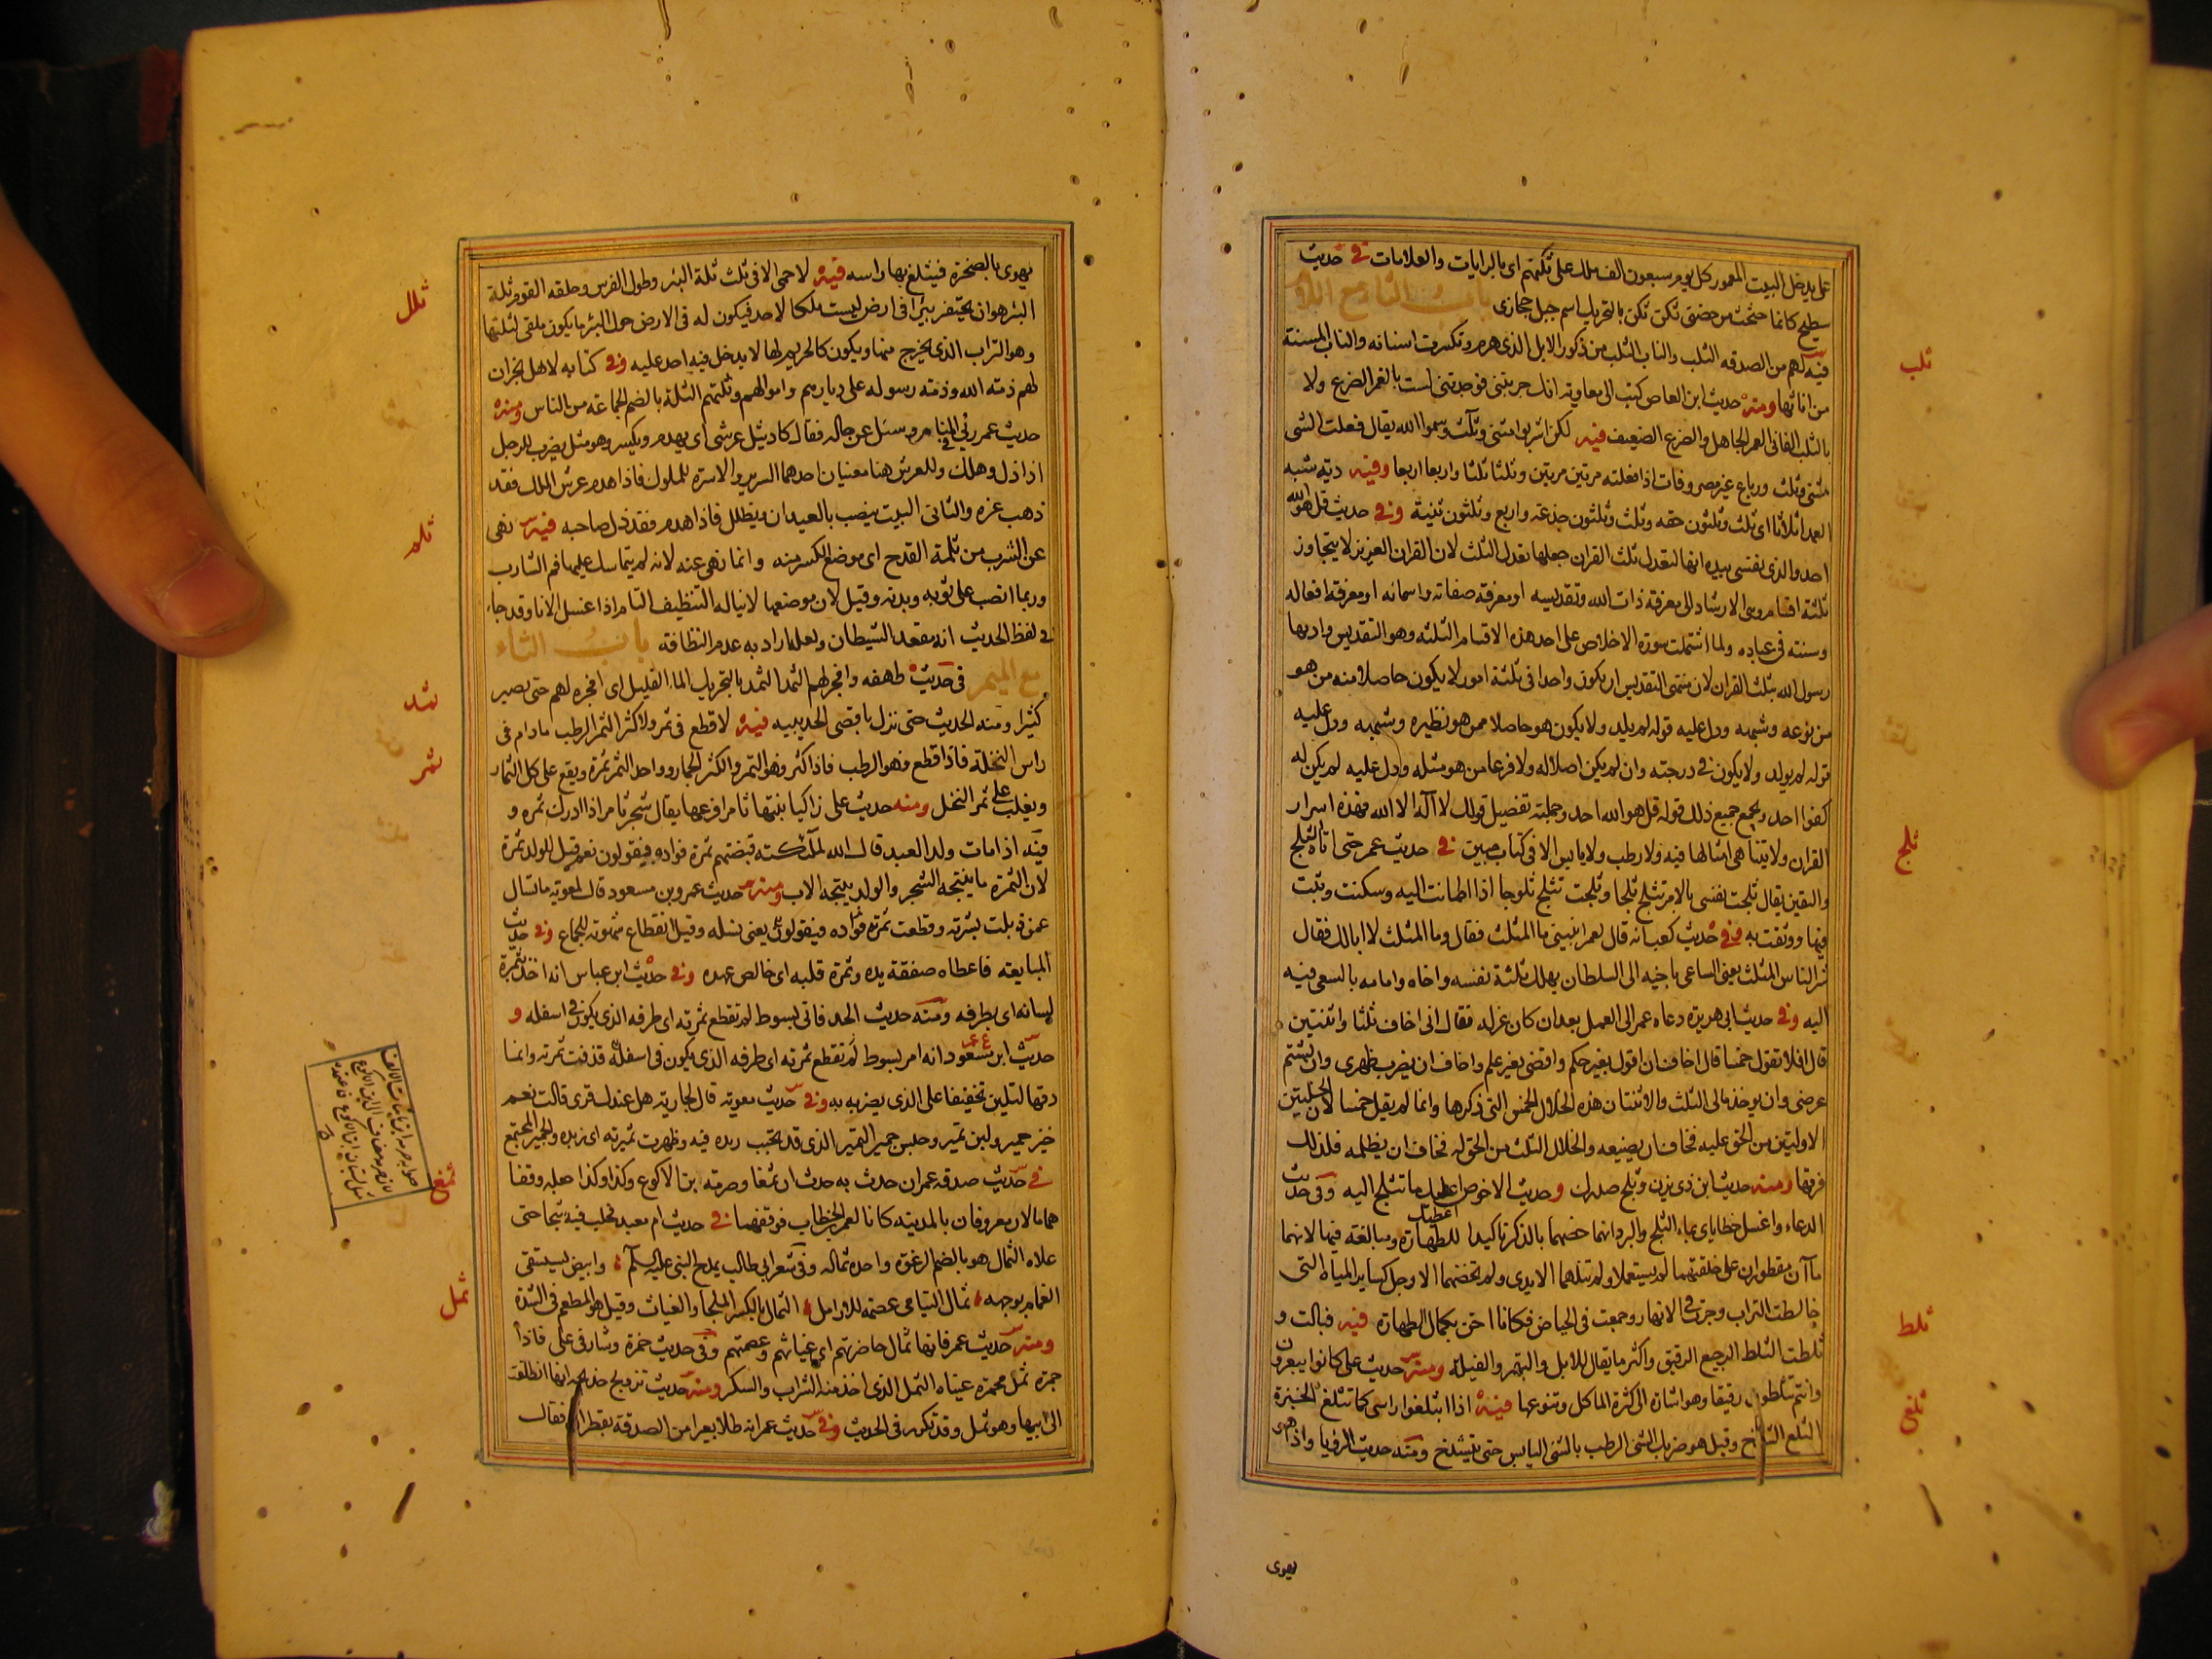 على يدخل البيت المعمور كل يوم سبعون الف ملك على ثكنتهم اى بالرايات والعلامات فى حديث
سطيح كانما حثحث من حضنى ثكن ثكن بالتحريك اسم جبل حجازى باب الثا مع اللام
فيه لهم من الصدقه الثلب والناب الثلب من ذكور الابل الذى هرم وتكسرت اسنانه والناب المسنة
من اناثها ومنه حديث ابن العاص كتب الى معاوية انك جربتنى فوجدتنى لست بالغمر الضرع ولا
بالثلب الفانى الغمر الجاهل والضرع الضعيف فيه لكن اشربوا مثنى وثلث وسموا الله يقال فعلت الشى
مثنى وثلث ورباع غير مصروفات اذا فعلته مرتين مرتين وثلثا ثلثا واربعا اربعا وفيه دية شبه
العمد اثلاثا اى ثلث وثلثون حقه وثلث وثلثون جذعة واربع وثلثون ثنية وفى حديث قل هو الله
احد والذى نفسى بيده انها لتعدل ثلث القران جعلها تعدل الثلث لان القران العزيز لا يتجاوز
ثلثة اقسام وهى الارشاد الى معرفة ذات الله وتقديسه او معرفة صفاته واسمائه او معرفة افعاله
وسنته فى عباده ولما اشتملت سورة الاخلاص على احد هذه الاقسام الثلثه وهو التقديس وازنها
رسول الله بثلث القران لان منتهى التقديس ان يكون واحدا فى ثلثة امور لا يكون حاصلا منه من هو
من نوعه وشبهه ودل عليه قوله لم يلد ولا يكون هو حاصلا ممن هو نظيره وشبهه ودل عليه
قوله لم يولد ولا يكون فى درجته وان لم يكن اصلا له ولا فرعا من هو مثله ودل عليه لم يكن له
كفوا احد ويجمع جميع ذلك قوله قل هو الله احد وجملته تفصيل قولك لا اله الا الله فهذه اسرار
القران ولا يتناهى امثالها فيه ولا رطب ولا يابس الا فى كتاب مبين فى حديث عمر حتى اتاه الثلج
واليقين يقال ثلجت نفسى بالامر تثلج ثلجا وثلجت تثلج ثلوجا اذا اطمانت اليه وسكنت وثبت
فيها ووثقت به وفى حديث كعب انه قال لعمر انبينى ما المثلث فقال وما المثلث لا ابالك فقال
شر الناس المثلث يعنى الساعى باخيه الى السلطان يهلك ثلثة نفسه واخاه وامامه بالسعى فيه
اليه وفى حديث ابى هريرة دعاه عمر الى العمل بعد ان كان عزله فقال انى اخاف ثلثا واثنتين
قال افلا تقول خمسا قال اخاف ان اقول بغير حكم واقضى بغير علم واخاف ان يضرب ظهرى وان يشتم
عرضى وان يوخذ مالى الثلث والاثنتان هذه الخلال الخمس التى ذكرها وانما لم يقل خمسا لان الخلتين
الاوليتين من الحق عليه فخاف ان يضيعه والخلال الثلث من الحق له فخاف ان يظلمه فلذلك
فرقها ومنه حديث ابن ذى يزن وثلج صدرك وحديث الاحوص اعطيك ما تثلج اليه وفى حديث
الدعاء واغسل خطاياى بماء الثلج والبرد انما خصهما بالذكر تاكيدا للطهارة ومبالغة فيها لانهما
ماآن مفطوران على خلقتهما لم يستعملا ولم تنلهما الايدى ولم تخضهما الارجل كساير المياه التى
خالطت التراب وجرت فى الانهار وجمعت فى الحياض فكانا احق بكمال الطهارة فيه فبالت و
ثلطت الثلط الرجيع الرقيق واكثر ما يقال للابل والبقر والفيلة ومنه حديث على كانوا يبعرون
وانتم تثلطون رقيقا وهو اشارة الى كثرة الماكل وتنوعها فيه اذا يثلغوا راسى كما تثلغ الخبزة
الثلغ الشدخ وقيل هو ضربك الشى الرطب بالشى اليابس حتى يتشدخ ومنه حديث الرؤيا واذا هو
يهوى
ثلب
ثلج
ثلط
ثلغ
يهوى بالصخرة فيثلغ بها راسه فيه لا حمى الا فى ثلث ثلة البئر وطول الفرس وحلقه القوم ثلة
البئر هو ان يحتفر بئرا فى ارض ليست ملكا لاحد فيكون له فى الارض حول البئر ما يكون ملقى لثلتها
وهو التراب الذى يخرج منها ويكون كالحريم لها لا يدخل فيه احد عليه وفى كتابه لاهل نجران
لهم ذمة الله وذمة رسوله على ديارهم واموالهم وثلتهم الثلة بالضم الجماعة من الناس ومنه
حديث عمر رئى فى المنام وسئل عن حاله فقال كاد يثل عرشى اى يهدم ويكسر وهو مثل يضرب للرجل
اذا ذل وهلك وللعرش هنا معنيان احدهما السرير والاسرة للملوك فاذا هدم عرش الملك فقد
ذهب عزه والثانى البيت ينصب بالعيدان ويظلل فاذا هدم فقد ذل صاحبه فيه نهى
عن الشرب من ثلمة القدح اى موضع الكسر منه وانما نهى عنه لانه لم يتماسك عليها فم الشارب
وربما انصب على ثوبه وبدنه وقيل لان موضعها لا يناله التنظيف التام اذا غسل الانا وقد جاء
فى لفظ الحديث انه مقعد الشيطان ولعله اراد به عدم النظافة باب الثاء
مع الميم فى حديث طهفه وافجر لهم الثمد الثمد بالتحريك الماء القليل اى افجره لهم حتى يصير
كثيرا ومنه الحديث حتى نزل باقصى الحديبيه فيه لا قطع فى ثمر ولا كثر الثمر الرطب ما دام فى
راس النخلة فاذا قطع فهو الرطب فاذا كثر فهو التمر والكثر الجمار وواحد الثمر ثمرة ويقع على كل الثمار
ويغلب على ثمر النخل ومنه حديث على زاكيا نبتها ثامرا فرعها يقال شجر ثامر اذا ادرك ثمره و
فيه اذا مات ولد العبد قال الله لملئكته قبضتم ثمرة فواده فيقولون نعم قيل للولد ثمرة
لان الثمرة ما ينتجه الشجر والولد ينتجه الاب ومنه حديث عمرو بن مسعود قال لمعوية ما تسال
عمن ذبلت بشرته وقطعت ثمرته يعنى نسله وقيل انقطاع شهوته للجماع وفى حديث
المبايعه فاعطاه صفقة يده وثمرة قلبه اى خالص عهده وفى حديث ابن عباس انه اخذ بثمرة
لسانه اى بطرفه ومنه حديث الحد فاتى بسوط لم تقطع ثمرته اى طرفه الذى يكون فى اسفله و
حديث ابن مسعود انه امر بسوط لم تقطع ثمرته اى طرفه الذى يكون فى اسفله فدقت ثمرته وانما
دقها لتلين تخفيفا على الذى يضربه به وفى حديث معوية قال لجارية هل عندك قرى قالت نعم
خبز خمير ولبن ثمير وحيس جمير الثمير الذى قد تحبب زبده فيه وظهرت ثميرته اى زبده والجمير المجتمع
فى حديث صدقة عمر ان حدث به حدث ان ثمغا وصرمة ابن الاكوع وكذا وكذا جعله وقفا
هما مالان معروفان بالمدينه كانا لعمر بن الخطاب فوقفهما فى حديث ام معبد فحلب فيه ثجا حتى
علاه الثمال هو بالضم الرغوة واحده ثماله وفى شعر ابى طالب يمدح النبى عليه السلم وابيض يستسقى
الغمام بوجهه ثمال اليتامى عصمه للارامل الثمال بالكسر الملجا والغياث وقيل هو المطعم فى الشدة
ومنه حديث عمر فانها ثمال حاضرتهم اى غياثهم وعصمتهم وفى حديث حمزة وشارفى على فاذا
حمزة ثمل محمرة عيناه الثمل الذى اخذ منه الشراب والسكر ومنه حديث تزويج خديجه انها انطلقت
الى ابيها وهو ثمل وقد تكرر فى الحديث وفى حديث عمر انه طلا بعيرا من الصدقة بقطران فقال
ثلل
ثلم
ثمد
ثمر
ثمغ
ثمل